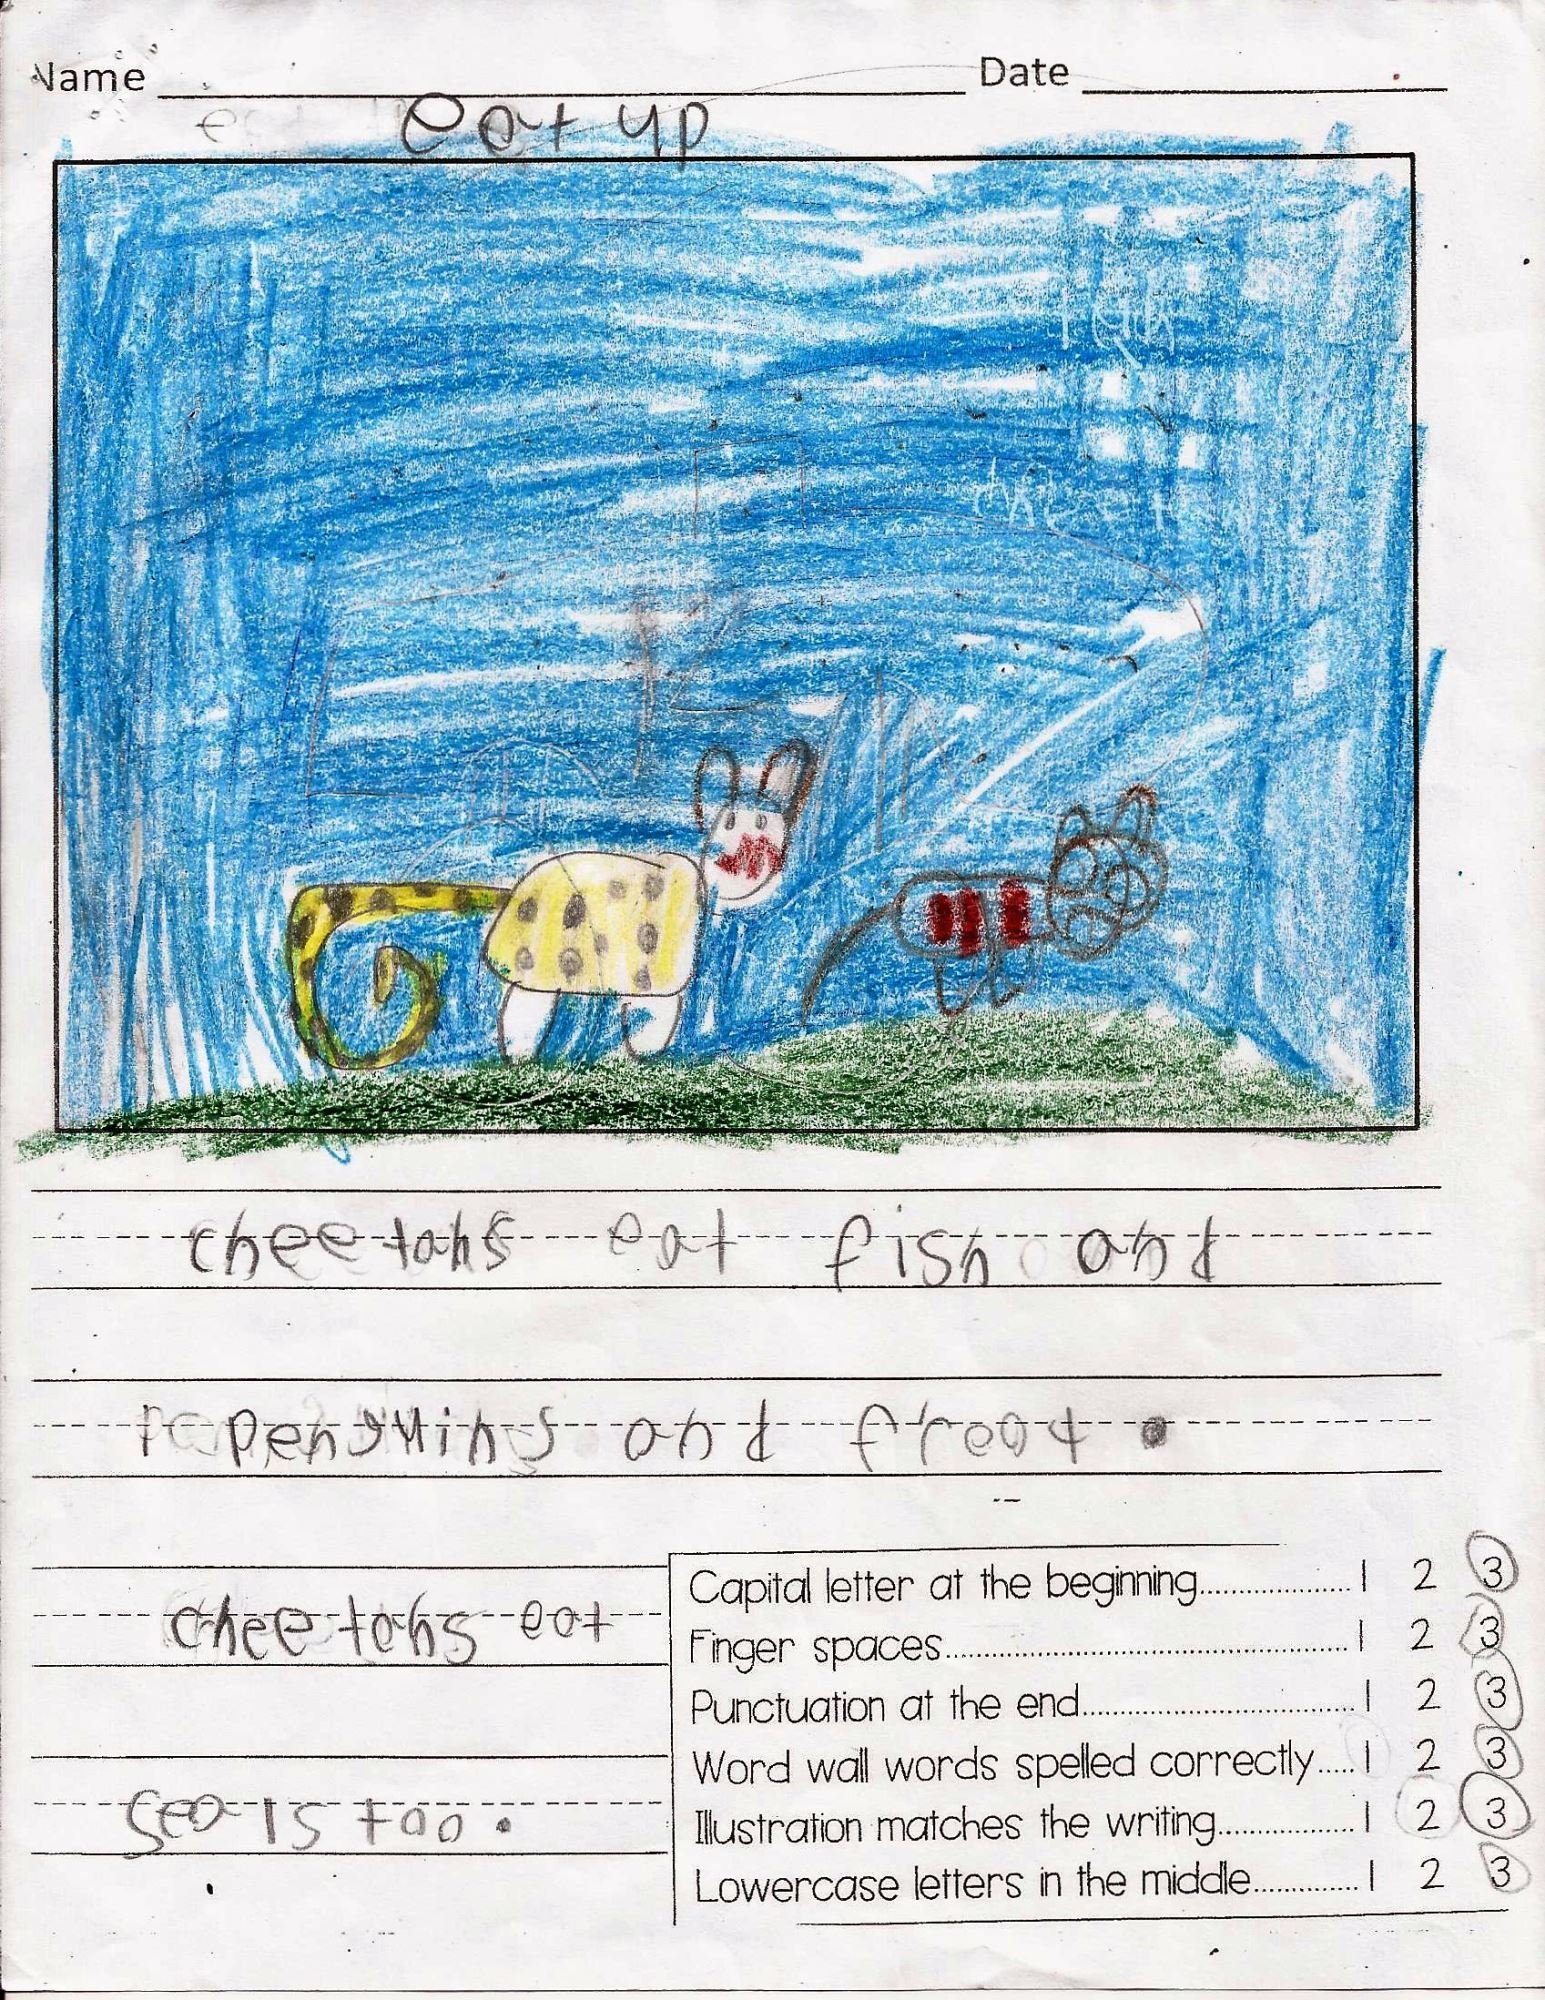 Name Date
eat up
cheetahs eat fish and
penguins and freat.
cheetahs eat
seals too.
Capital letter at the beginning..................1 2 3
Finger spaces..................1 2 3
Punctuation at the end..................1 2 3
Word wall words spelled correctly.....1 2 3
Illustration matches the writing..................1 2 3
Lowercase letters in the middle..............1 2 3